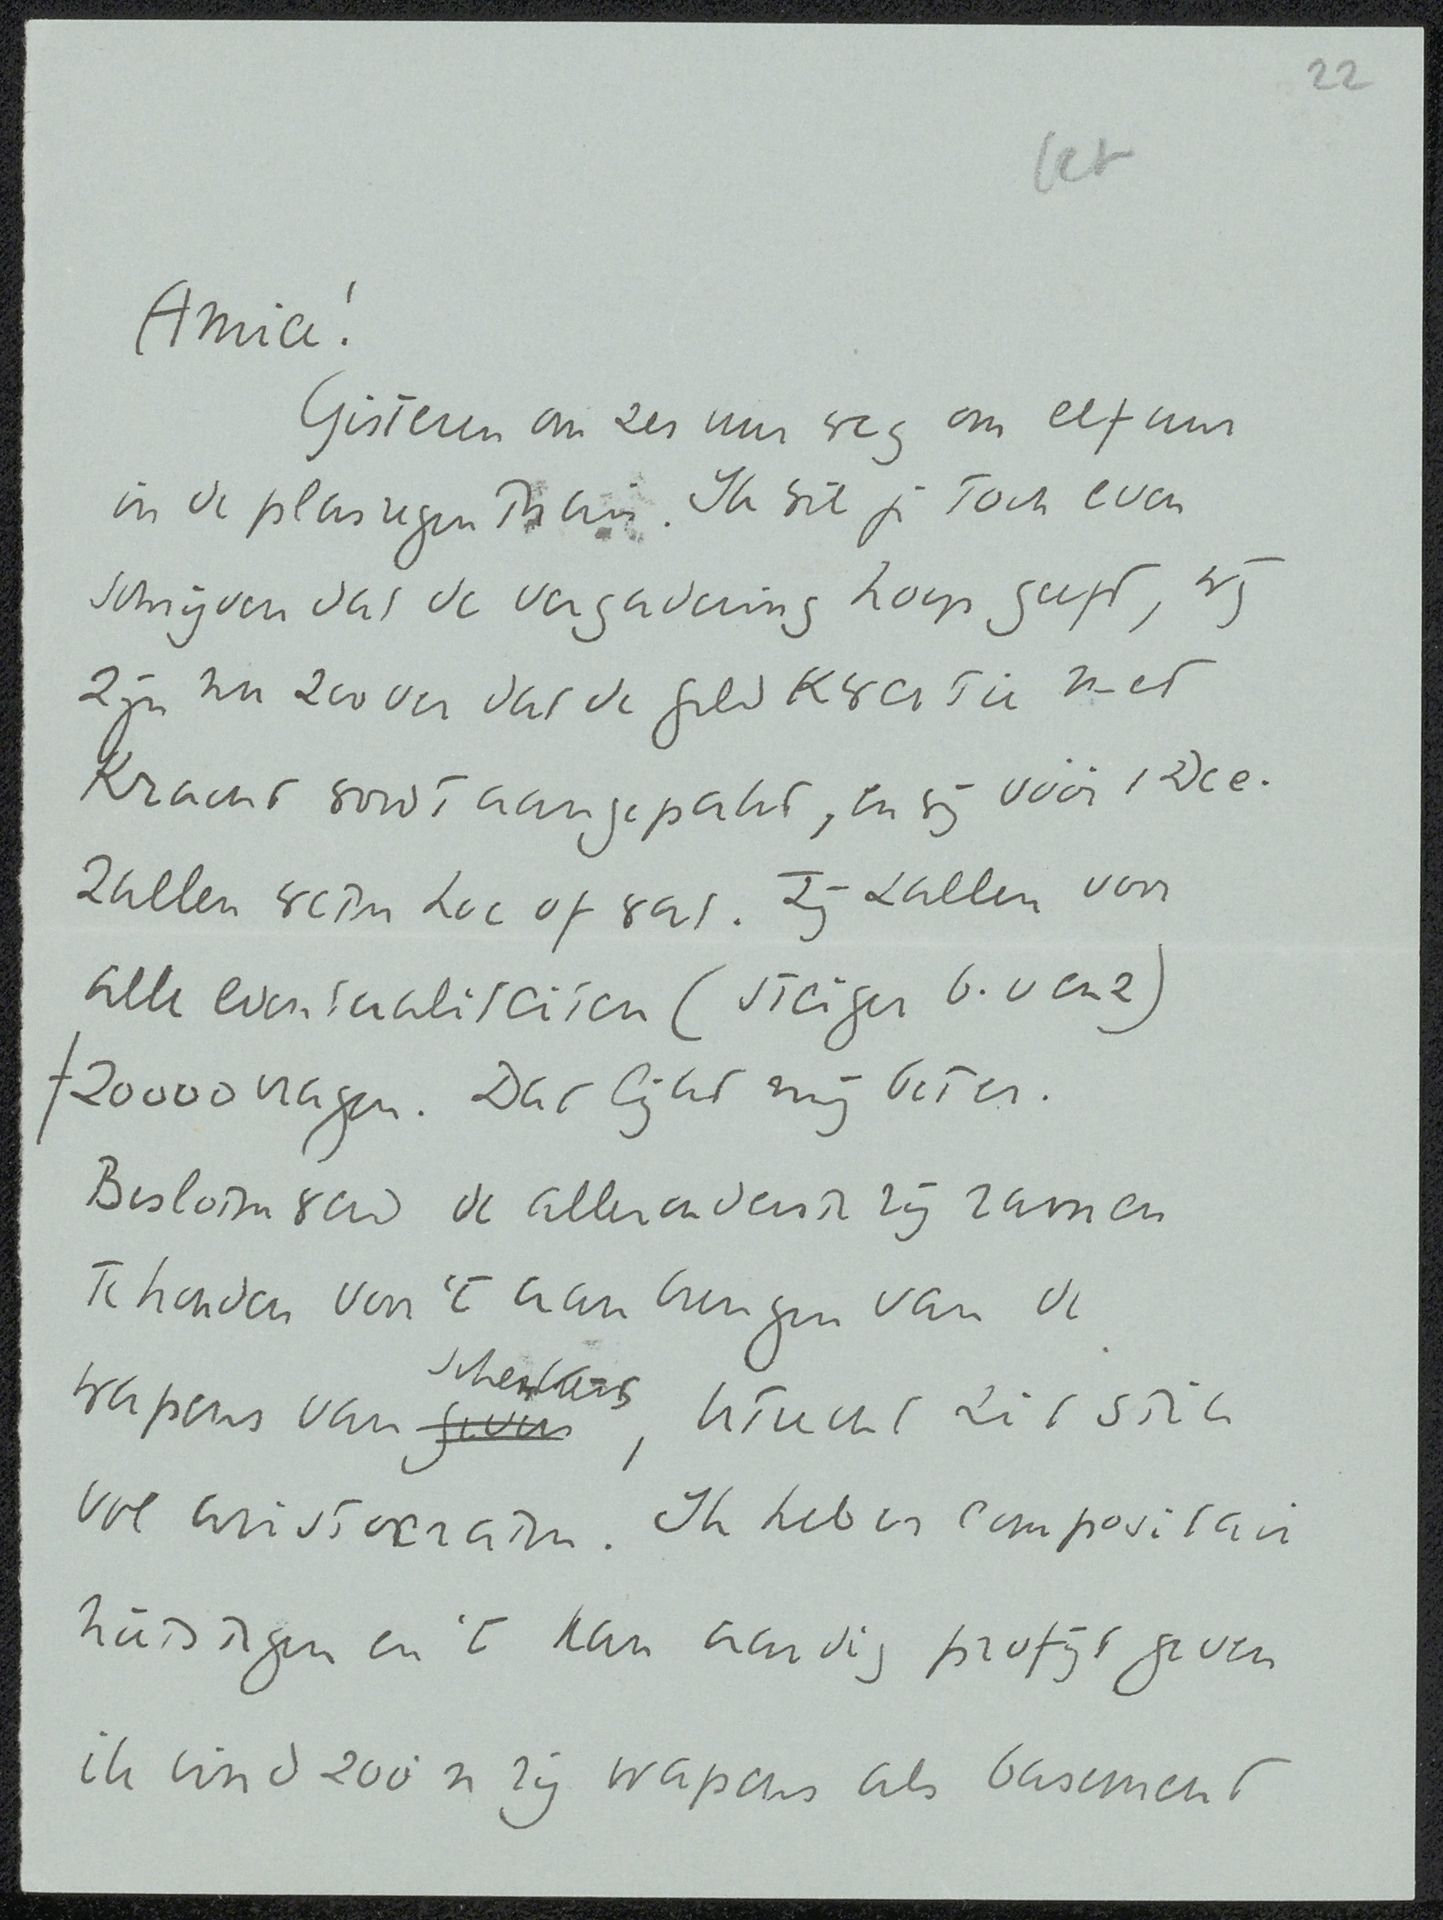 22
Amice!
Gisteren om zes uur weg om elf uur
in de plasregen thuis. Ik wil je toch even
schrijven dat de vergadering hoop geeft, wij
zijn nu zoover dat de geldkwestie met
kracht wordt aangepakt, en wij vóór 1 Dec.
zullen weten hoe of wat. Zij zullen voor
alle eventualiteiten (steiger b. v enz)
f 20000 vragen. Dat lijkt mij beter.
Besloten werd de alleronderste rij ramen
te houden voor 't aanbrengen van de
wapens van geven schenkers, Utrecht zit stik
vol aristocraten. Ik heb er compositair
niets tegen en 't kan aardig profijt geven
ik vind zoo'n rij wapens als basement